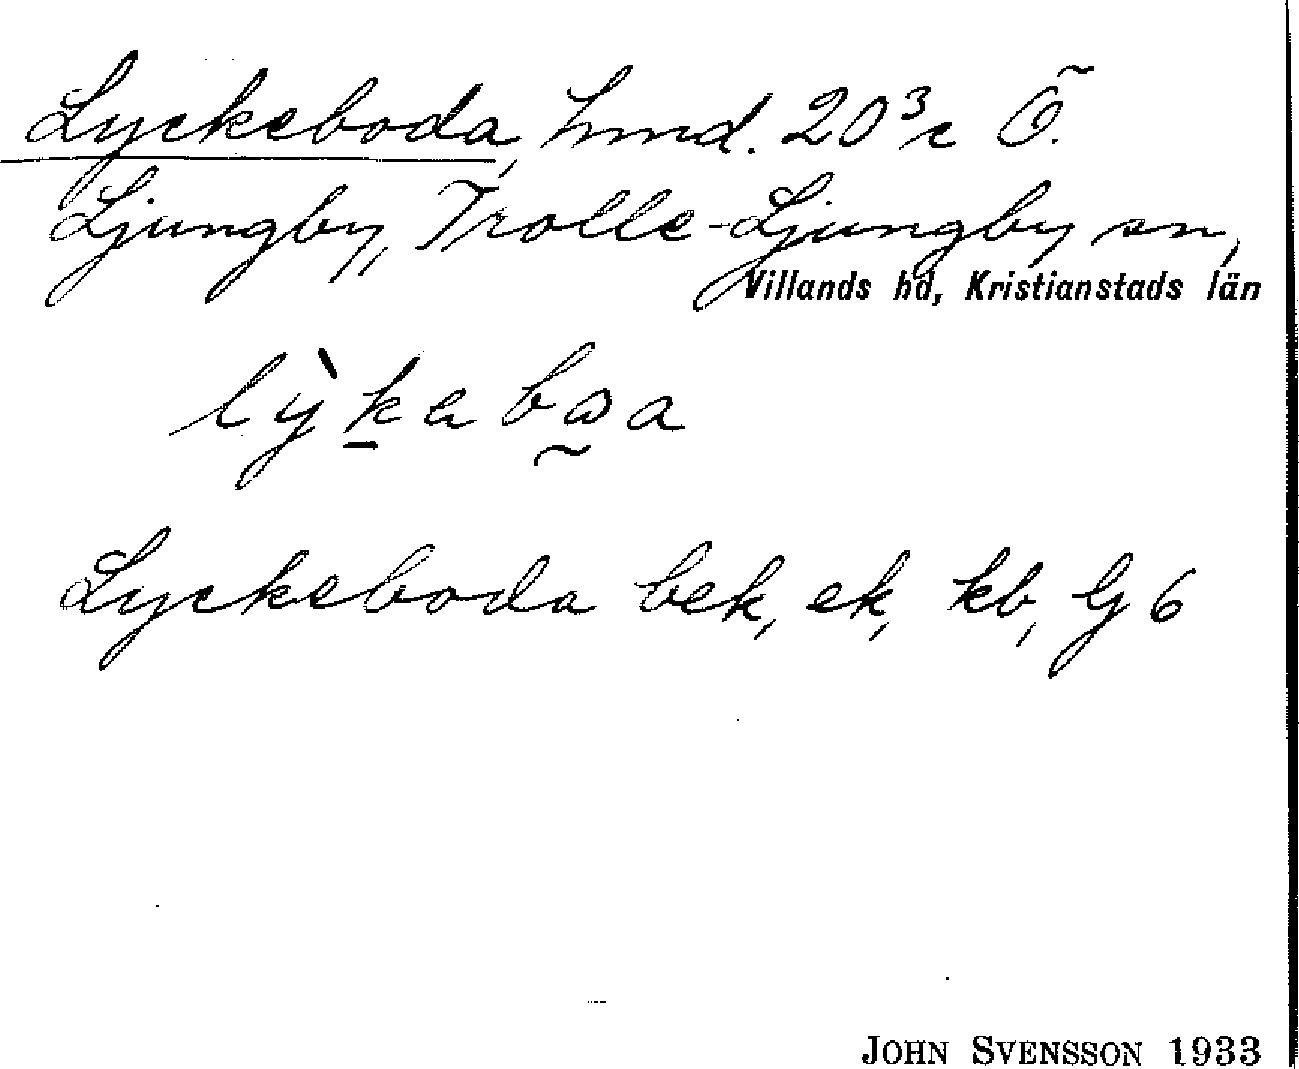 Lyckeboda, hmd. 20³c Ö.
Ljungby, Trolle-Ljungby sn,
Villands hd, Kristianstads län
lỳkabaa
Lyckeboda bek, ek, kb, G6
JOHN SVENSSON 1933